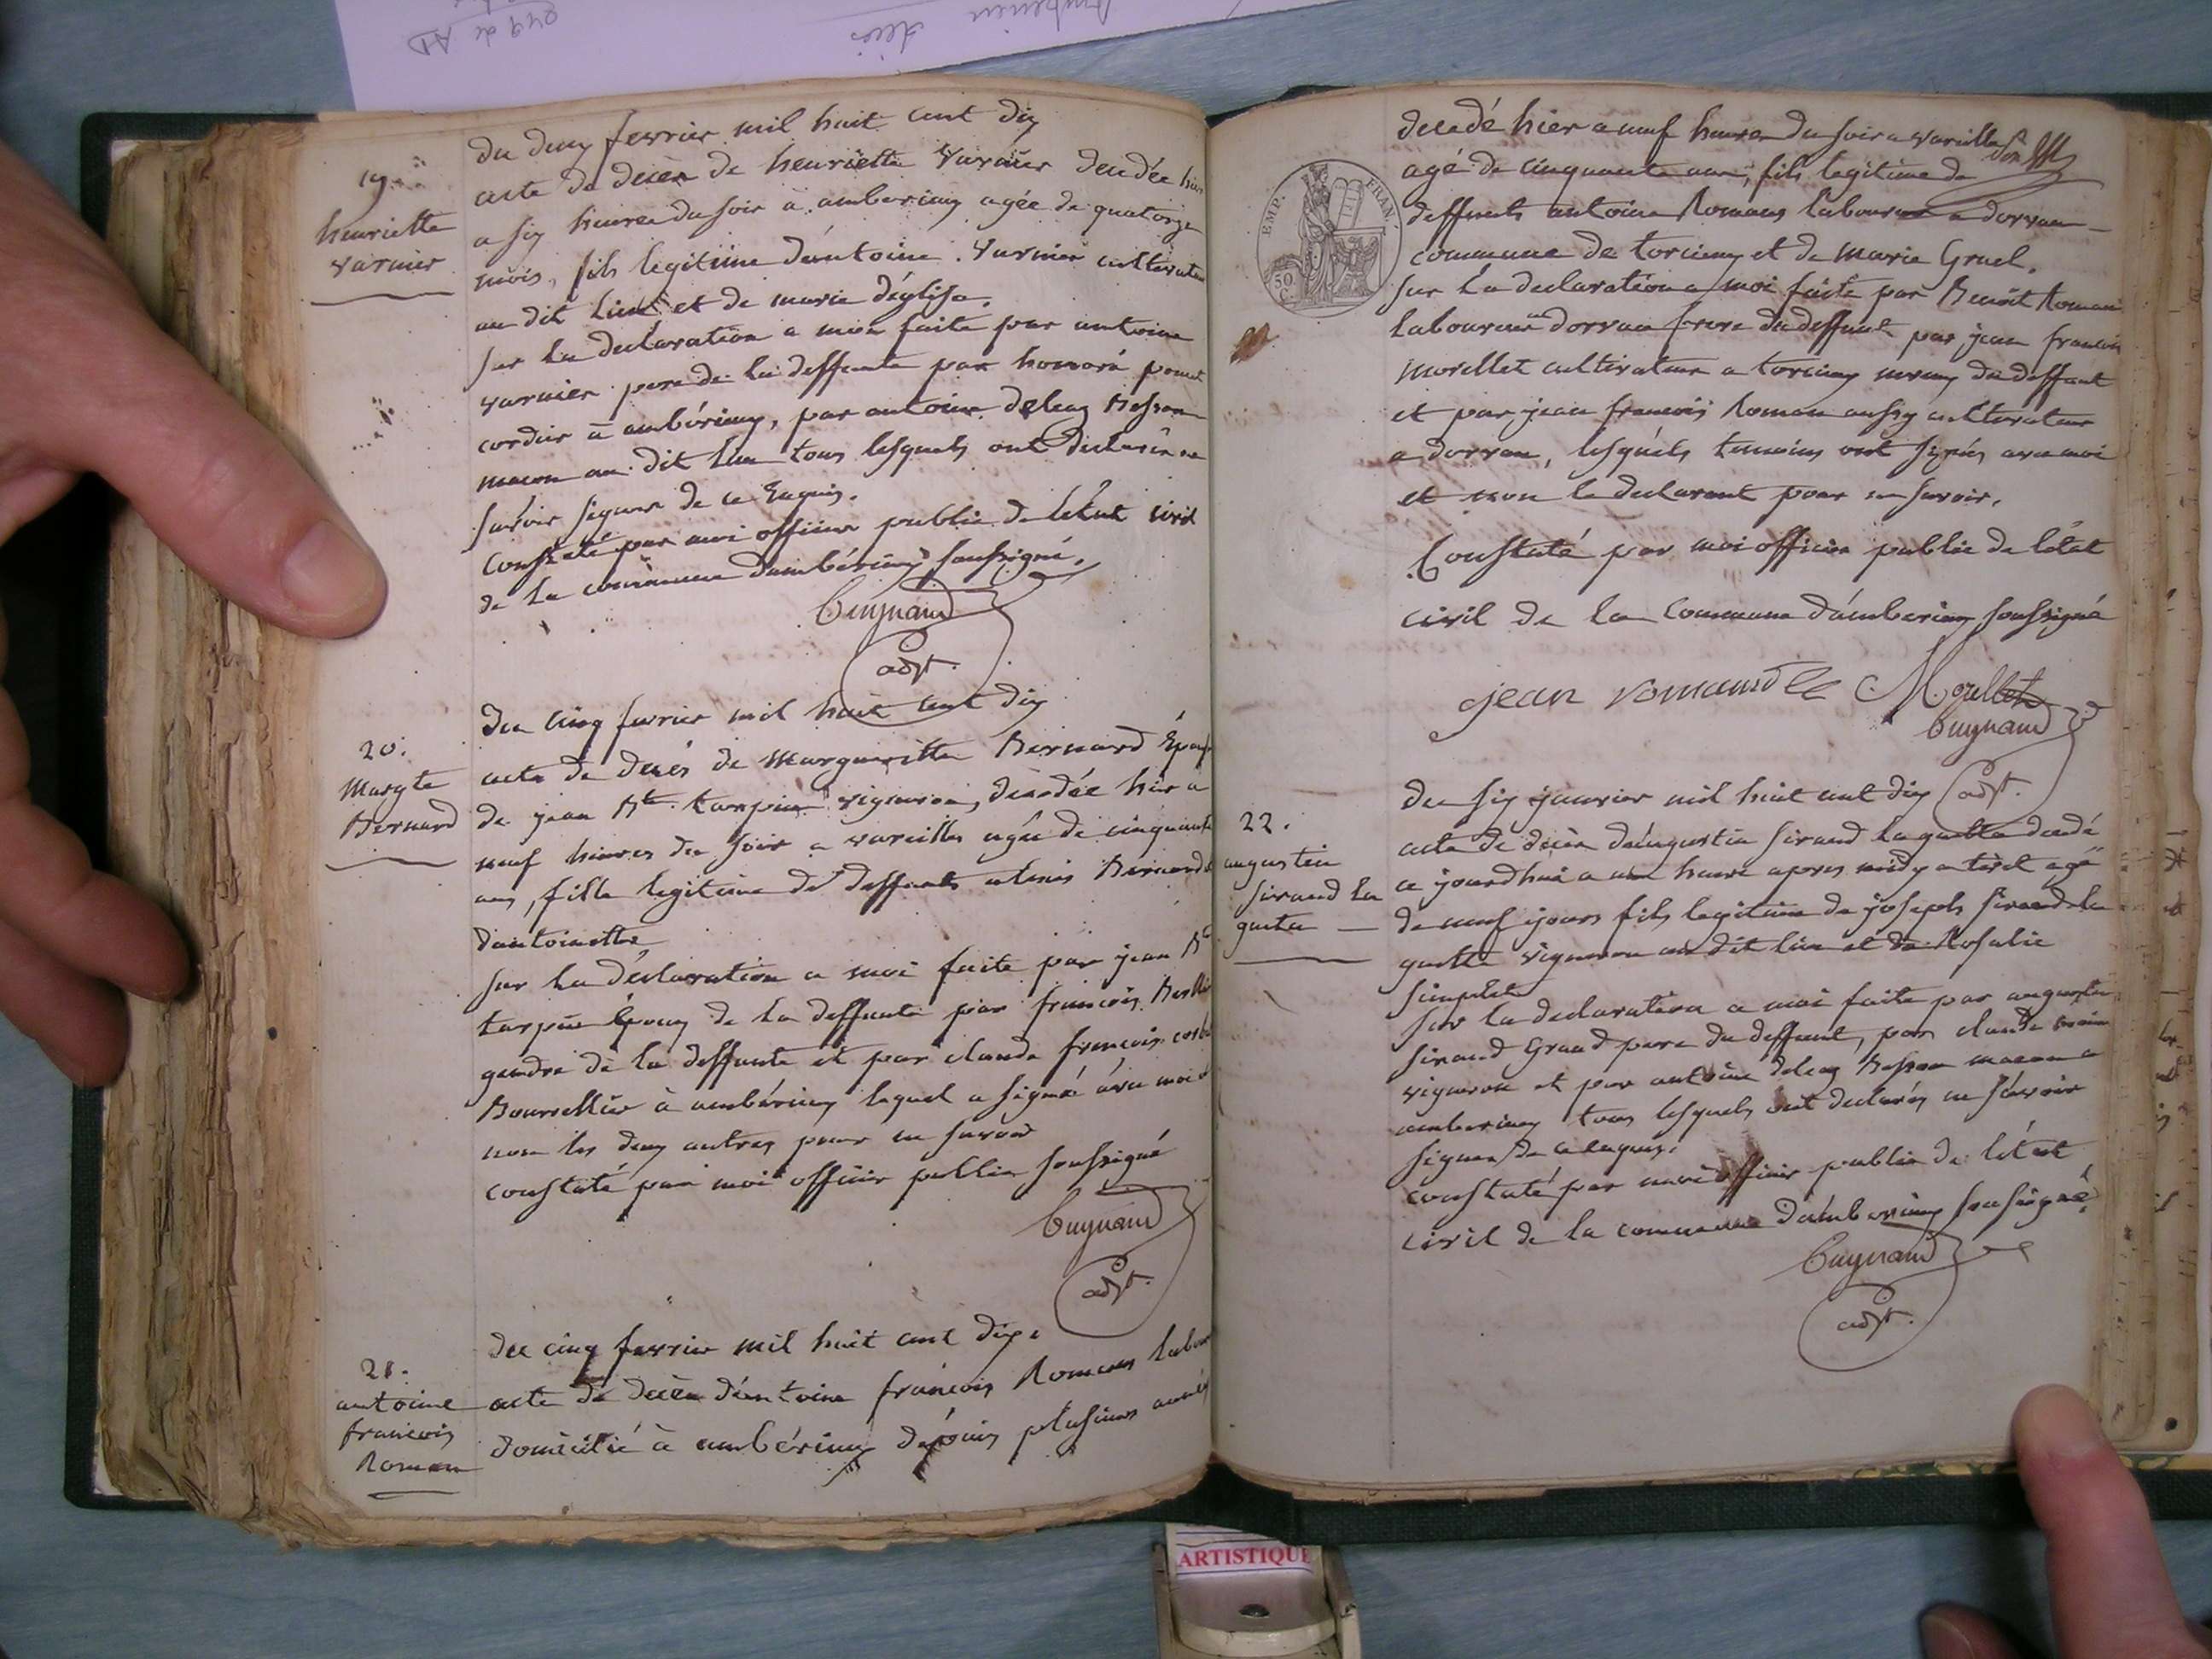 19.
henriette
varnier
du deux fevrier mil huit cent dix
acte de décès de henriette varnier décédée hier
a six heures du soir a amberieux agée de quatorze
mois, fils legitime d'antoine varnier cultivateur
au dit lieu et de marie déglise.
sur la declaration a moi faite par antoine
varnier pere de la deffunte par honoré
cordier à ambérieux, par antoine Besson
macon au dit lieu tous lesquels ont declarés ne
savoir signer de ce enquis.
Constaté par moi officier public de létat civil
de la commune dambérieux soussigné.
Cuynaud
adjt.
20.
Margte
Bernard
du cinq fevrier mil huit cent dix
acte de décès de Margueritte Bernard épouse
de jean Bte. tarpin vigneron, décédée hier a
neuf heures du soir a vareilles agée de cinquante
ans, fille legitime de deffunts Bernard
d'antoinette
sur la déclaration a moi faite par jean Bte
tarpin époux de la deffunte par francois
gendre de la deffunte et par claude francois
Bourrellier à ambérieux lequel a signé avec moi
non les deux autres pour ne savoir
constaté par moi officier public soussigné
Cuynaud
adjt.
21.
antoine
francois
Roman
du cinq fevrier mil huit cent dix.
acte de décès d'antoine francois Romans labour
domicilié à ambérieux depuis plusieurs années
décédé hier a neuf heures du soir a vareilles
agé de cinquante ans, fils legitime de
deffunts antoine Romans laboureur a dorvan
commune de torcieux et de marie Gruel.
sur la declaration a moi faite par Benoit Roman
laboureur a dorvan frere du deffunt par jean francois
morellet cultivateur a torcieux neveux du deffunt
et par jean francois Roman aussy cultivateur
a dorvan, lesquels temoins ont signés avec moi
et non le declarant pour ne savoir.
Constaté par moi officier public de létat
civil de la Commune dámberieux soussigné
jean romand Morellet
Cuynaud
adjt.
EMP. FRAN.
50 C.
22.
augustin
sirand la
guette
du six janvier mil huit cent dix
acte de décès d'augustin sirand laguette décédé
ce jourdhui a une heure apres midy a tiret agé
de neuf jours fils legitime de joseph sirand la
guette vigneron au dit lieu et de Rosalie
simplet
sur la declaration a moi faite par augustin
sirand Grand pere du deffunt, par claude
vigneron et par antoine Besson macon a
amberieux tous lesquels ont declarés ne savoir
signer de ce enquis.
constaté par moi officier public de létat
civil de la commune dámberieux soussigné
Cuynaud
adjt.
ARTISTIQUE